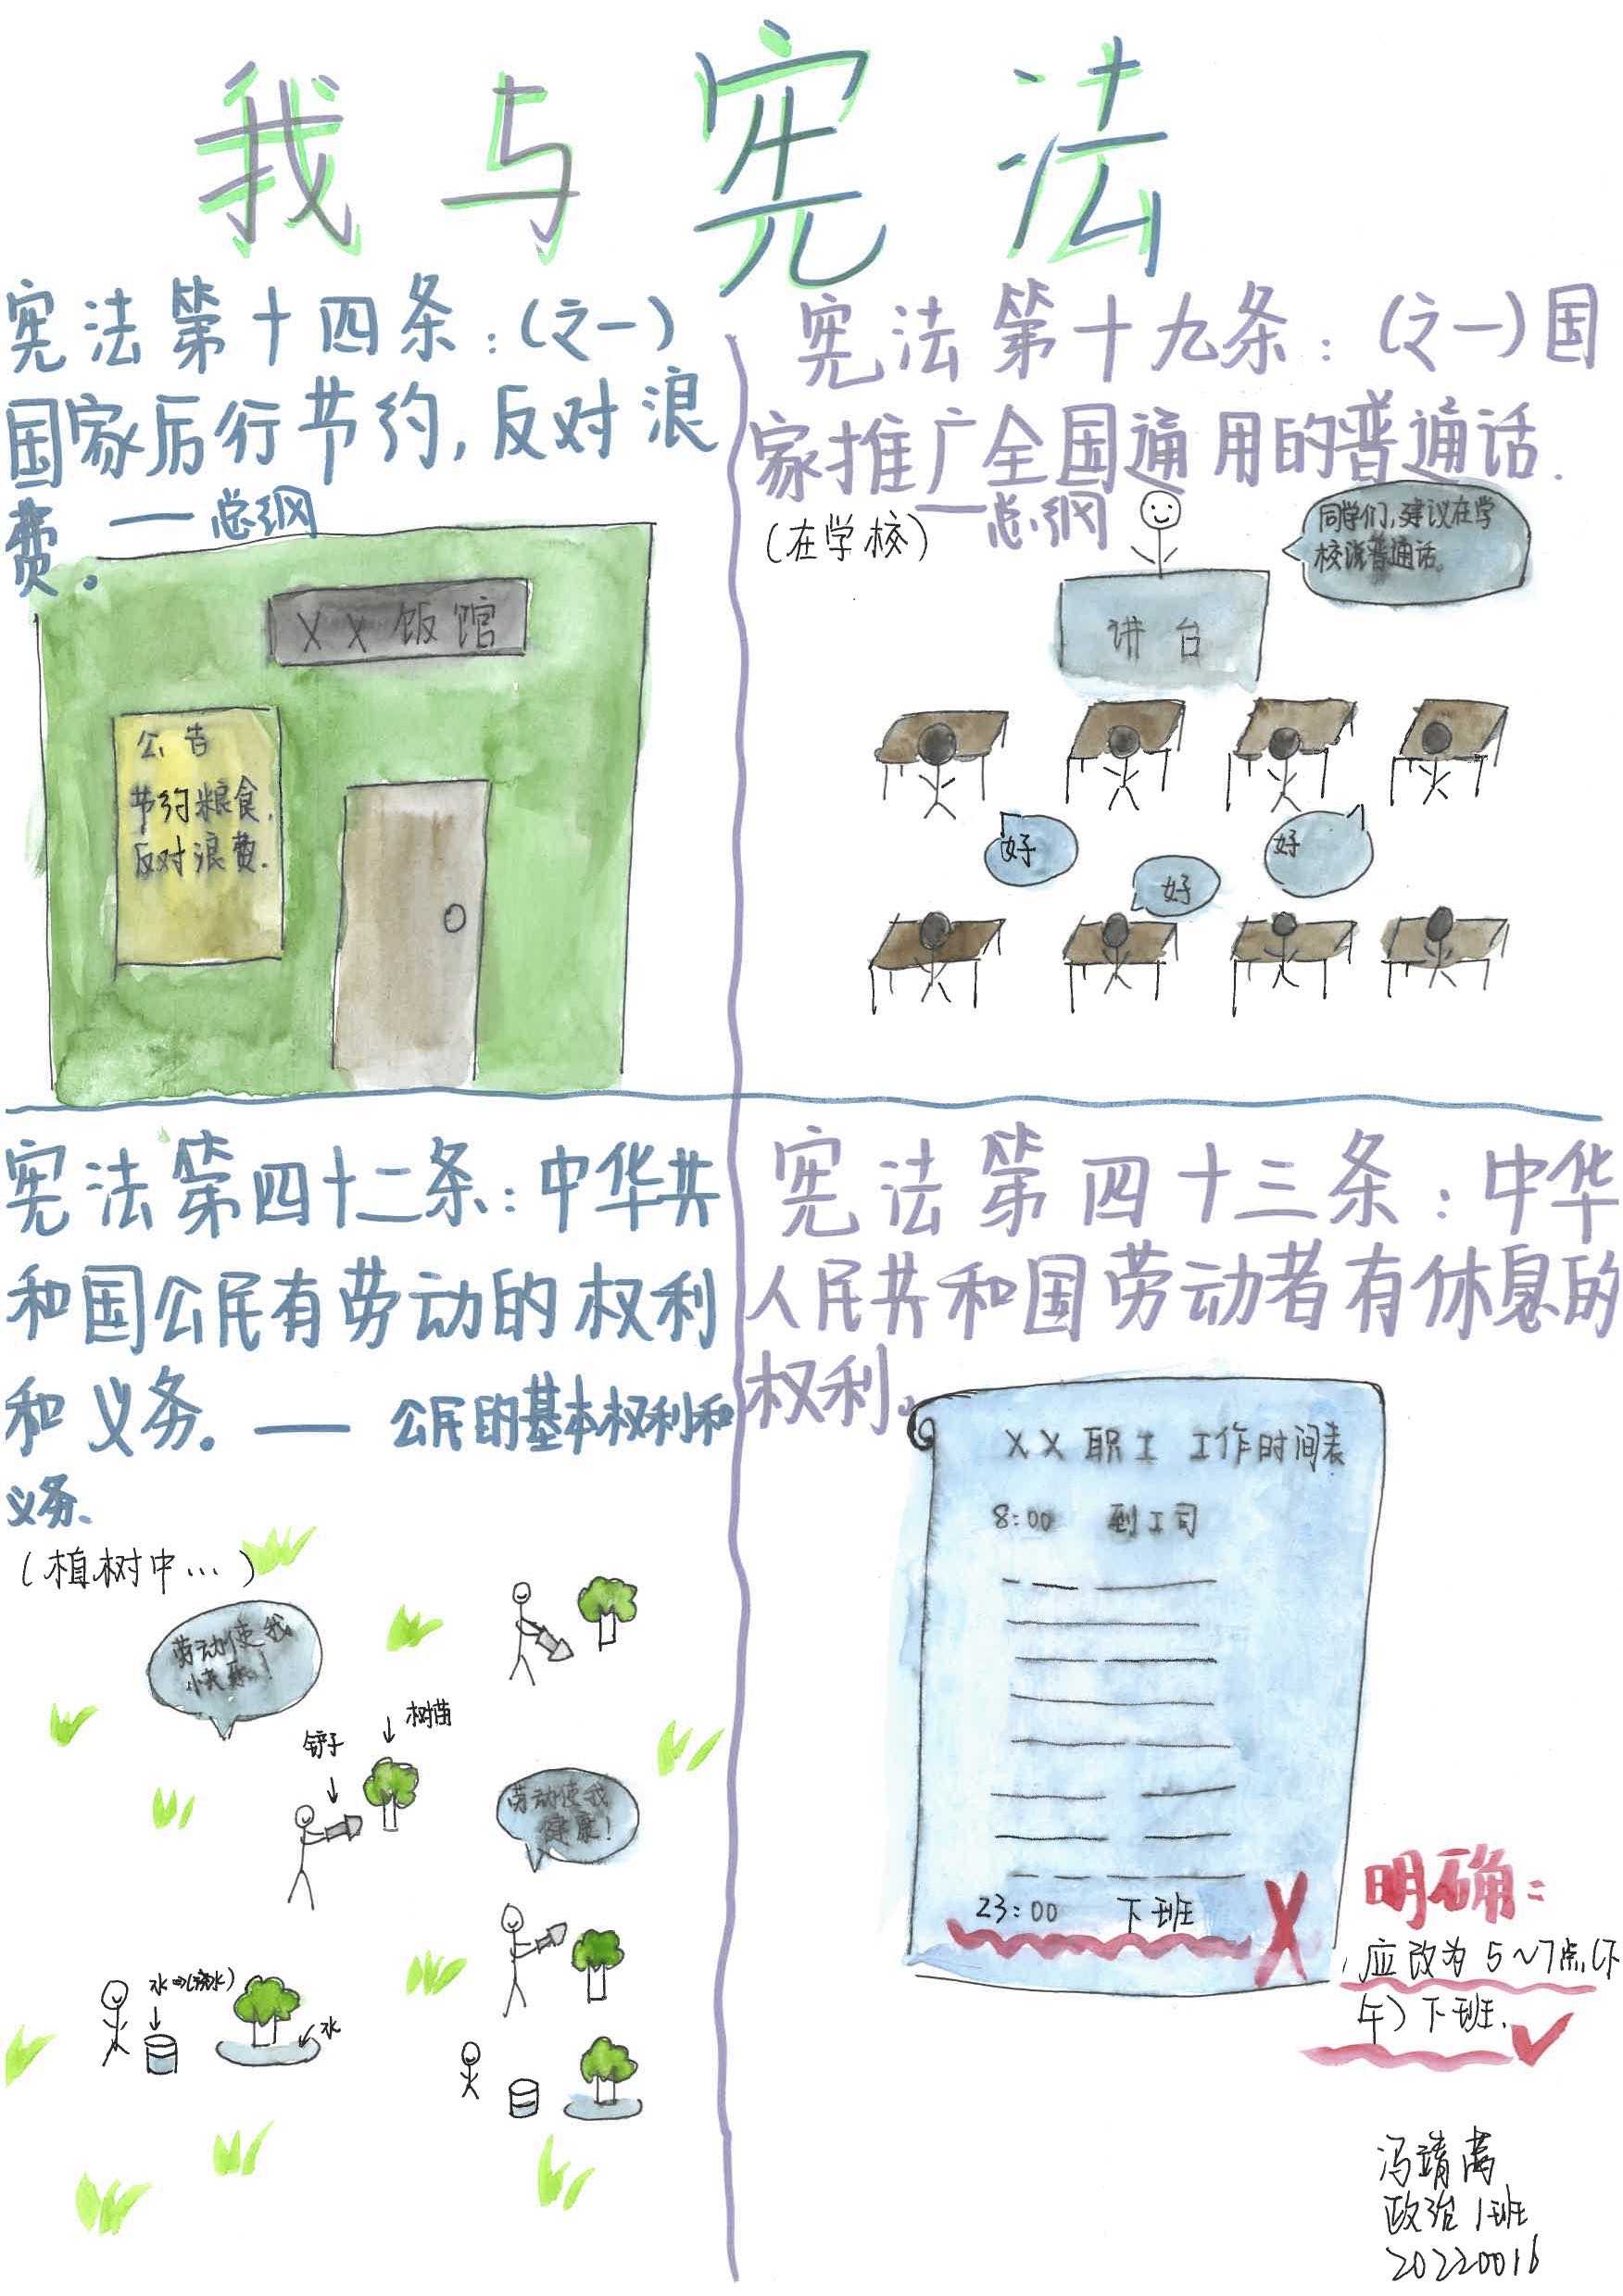 我与宪法
宪法第十四条：（之一）
国家厉行节约，反对浪
费。——总纲
XX饭馆
公告
节约粮食，
反对浪费.
宪法第十九条：（之一）国
家推广全国通用的普通话.
——总纲
（在学校）
同学们，建议在学
校说普通话。
讲台
好
好
好
宪法第四十二条：中华共
和国公民有劳动的权利
和义务。——公民的基本权利和
义务、
（植树中…）
劳动使我
快乐！
铲子
树苗
劳动使我
健康！
水⇒(浇水)
水
宪法第四十三条：中华
人民共和国劳动者有休息的
权利。
XX职工 工作时间表
8:00 到工司
23:00 下班
明确：
应改为5~7点(下
午）下班.
冯靖
政治1班
20220016